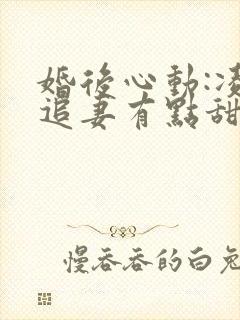 婚後心動:凌
追妻有點甜
慢吞吞的白兔